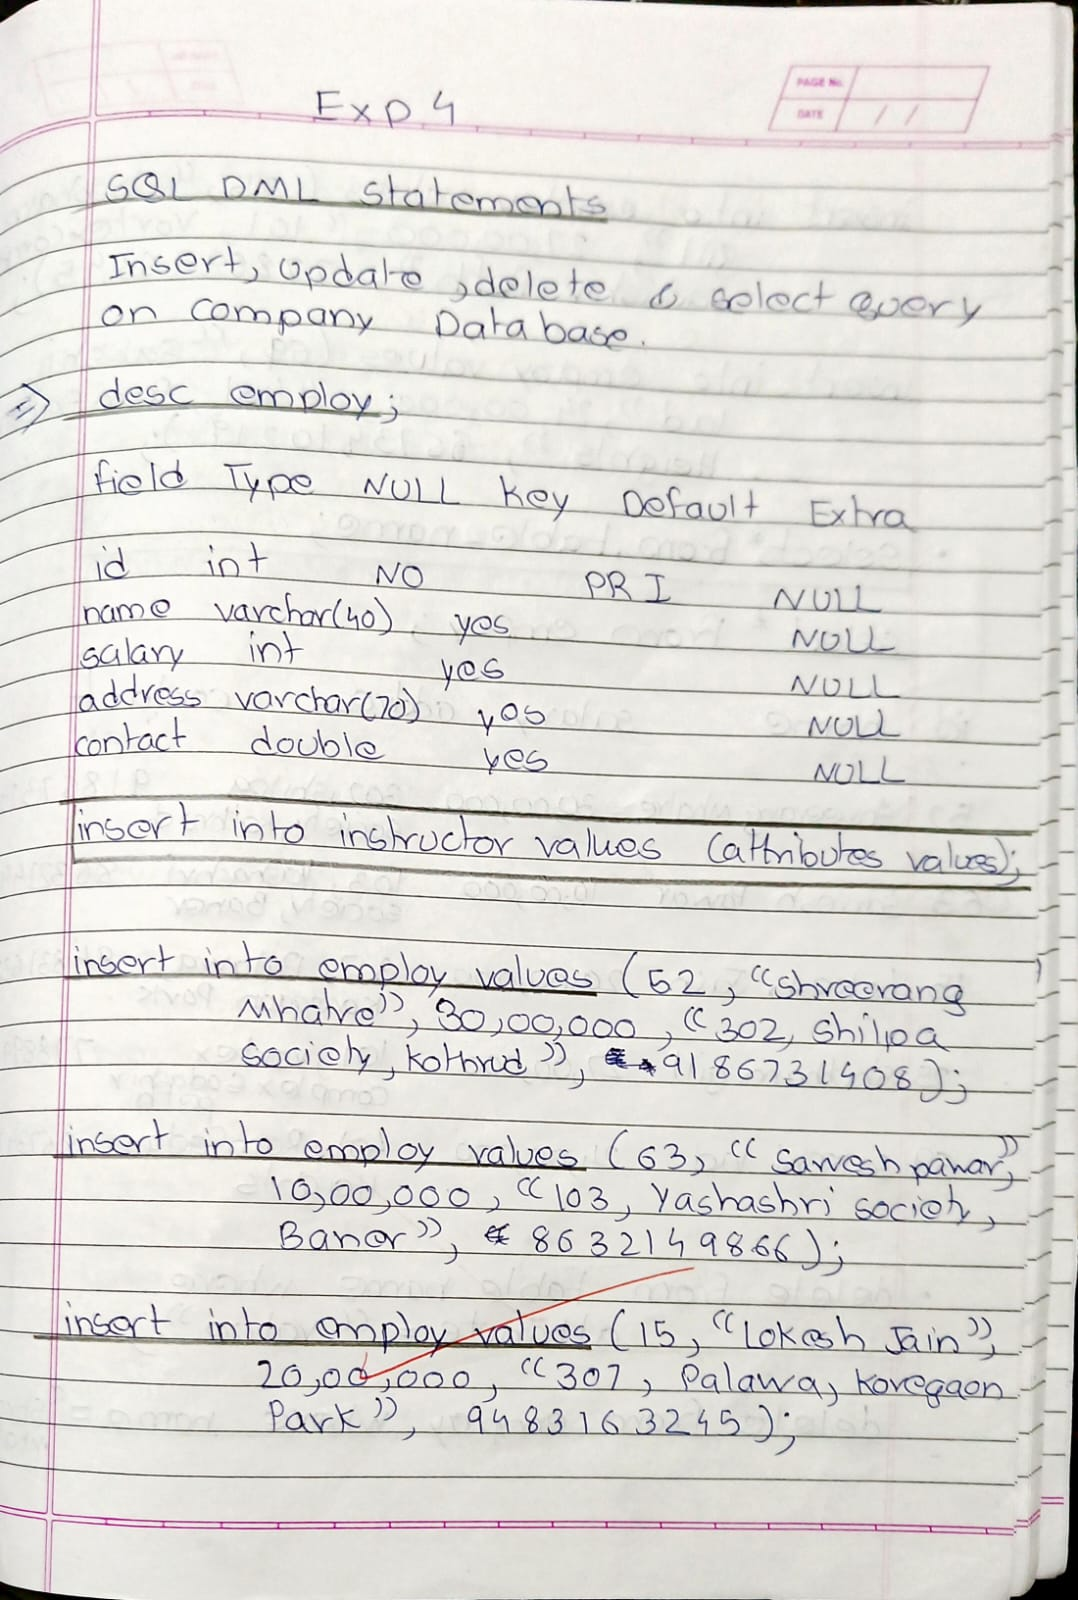 PAGE No.
DATE / /
Exp 4
SQL DML statements
Insert, update, delete & select query
on company Database.
=> desc employ;
field Type NULL Key Default Extra
id int NO PRI NULL
name varchar(40) yes NULL
salary int yes NULL
address varchar(70) yes NULL
contact double yes NULL
insert into instructor values (attributes values);
insert into employ values (52, "Shreerang
Mhatre", 30,00,000, "302, Shilpa
society, kothrud", 9186731408);
insert into employ values (63, "Sarvesh pawar",
10,00,000, "103, Yashashri society,
Baner", 8632149866);
insert into employ values (15, "Lokesh Jain",
20,00,000, "307, Palawa, Koregaon
Park", 9483163245);